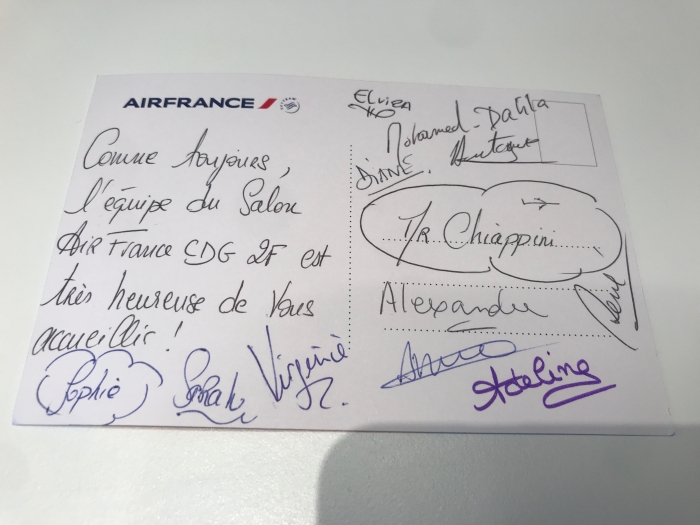 AIRFRANCE
Comme toujours,
l'équipe du Salon
AIR France CDG 2F est
très heureuse de Vous
accueillir !
Sophie
Sarah
Virginie
Elvira
Mohamed - Dahla
DIANE
Mr Chiappini
Alexandre
Adeline